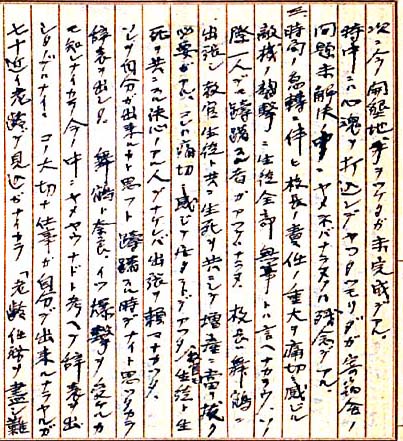 次ニ今開墾地事ヲヤッタガ未完成デアル。
時中ニハ心魂ヲ打込ンデヤッタツモリダガ寄宿舎ノ
問題未解決中ニヤメネバナラヌノハ残念デアル。
三、時局ノ急轉ニ伴ヒ校長ノ責任ノ重大ヲ痛切ニ感ジル
敵機ノ襲撃ニ生徒全部無事トハ言ヘナカラウ。ソノ
際一人デモ躊躇スル者ガアッテハナラヌ。校長舞鶴ニ
出張シ教官生徒ト共ニ生死ヲ共ニシテ増産ニ當リ抜ク
必要ガアル。コレハ痛切ニ感ジテ居タトコデアッタ。生徒ト生
死ヲ共ニスル決心ノアル人デナケレバ出張ヲ頼マナカッタ。
ソレヲ自分ガ出来ルナト思フト躊躇スル時デナイト思ッタカラ
辞表ヲ出シタ。舞鶴ト奈良、イツ爆撃ヲ受ケルカ
モ知レナイカラ今ノ中ニヤメヤウナドト考ヘテ辞表ヲ出
シタノデハナイ。コノ大切ナ仕事ガ自分デ出来ルナラヤルガ
七十近イ老齢デ見込ガナイカラ「老齢任務ヲ盡シ難